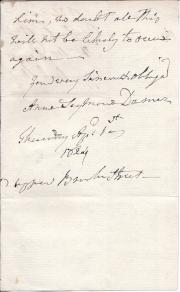 him, no doubt all this
will not be likely to occur
again —
Your very Sincere & obliged
Anne Seymour Damer
Thursday Apl 1st
1824
Upper Brook Street —